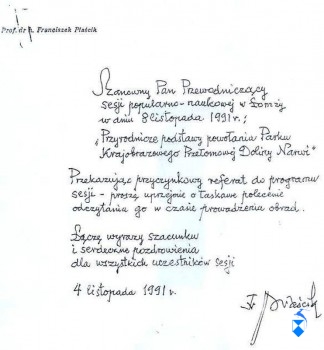 Prof. dr h. Franciszek Pluścik
Szanowny Pan Przewodniczący
sesji popularno-naukowej w Łomży
w dniu 8 listopada 1991 r.;
"Przyrodnicze podstawy powołania Parku
Krajobrazowego Przełomowej Doliny Narwi"
Przekazując przyczynkowy referat do programu
sesji - proszę uprzejmie o łaskawe polecenie
odczytania go w czasie prowadzenia obrad.
Łączę wyrazy szacunku
i serdeczne pozdrowienia
dla wszystkich uczestników sesji
4 listopada 1991 r.